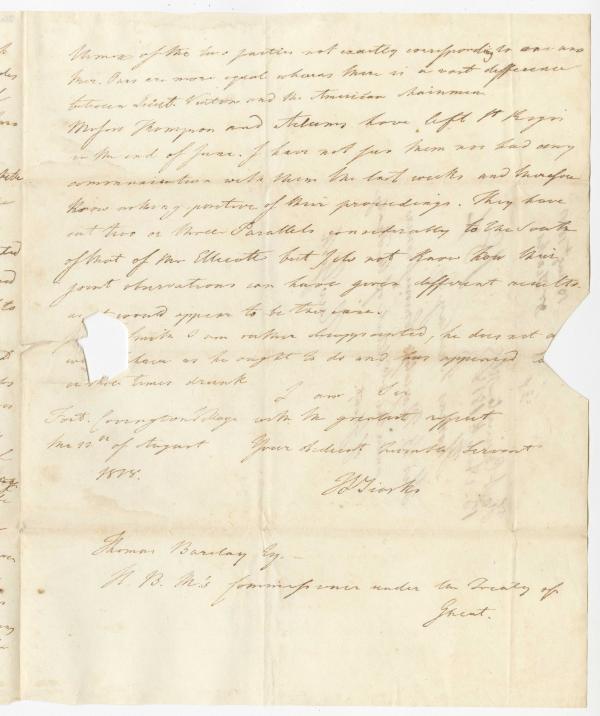 of the two parties not exactly corresponding to one ano
ther. Ours are more equal whereas there is a vast difference
between Lieut. and the American Chainmen
Messrs Thompson and Adams have left St Regis
in the end of June. I have not seen them nor had any
communication with them the last weeks and therefore
know nothing positive of their proceedings. They have
cut two or three Parallels considerably to the South
of that of Mr Ellicott but I do not know how their
joint observations can have given different results
as it would appear to be the case.
Smith I am rather disappointed, he does not
as he ought to do and has appeared
times drunk
I am Sir
Fort Covington Village with the greatest respect
the 11th of August Your obedient humble Servant
1818.
Tiarks
Thomas Barclay Esq.
H. B. M.'s Commissioner under the Treaty of
Ghent.